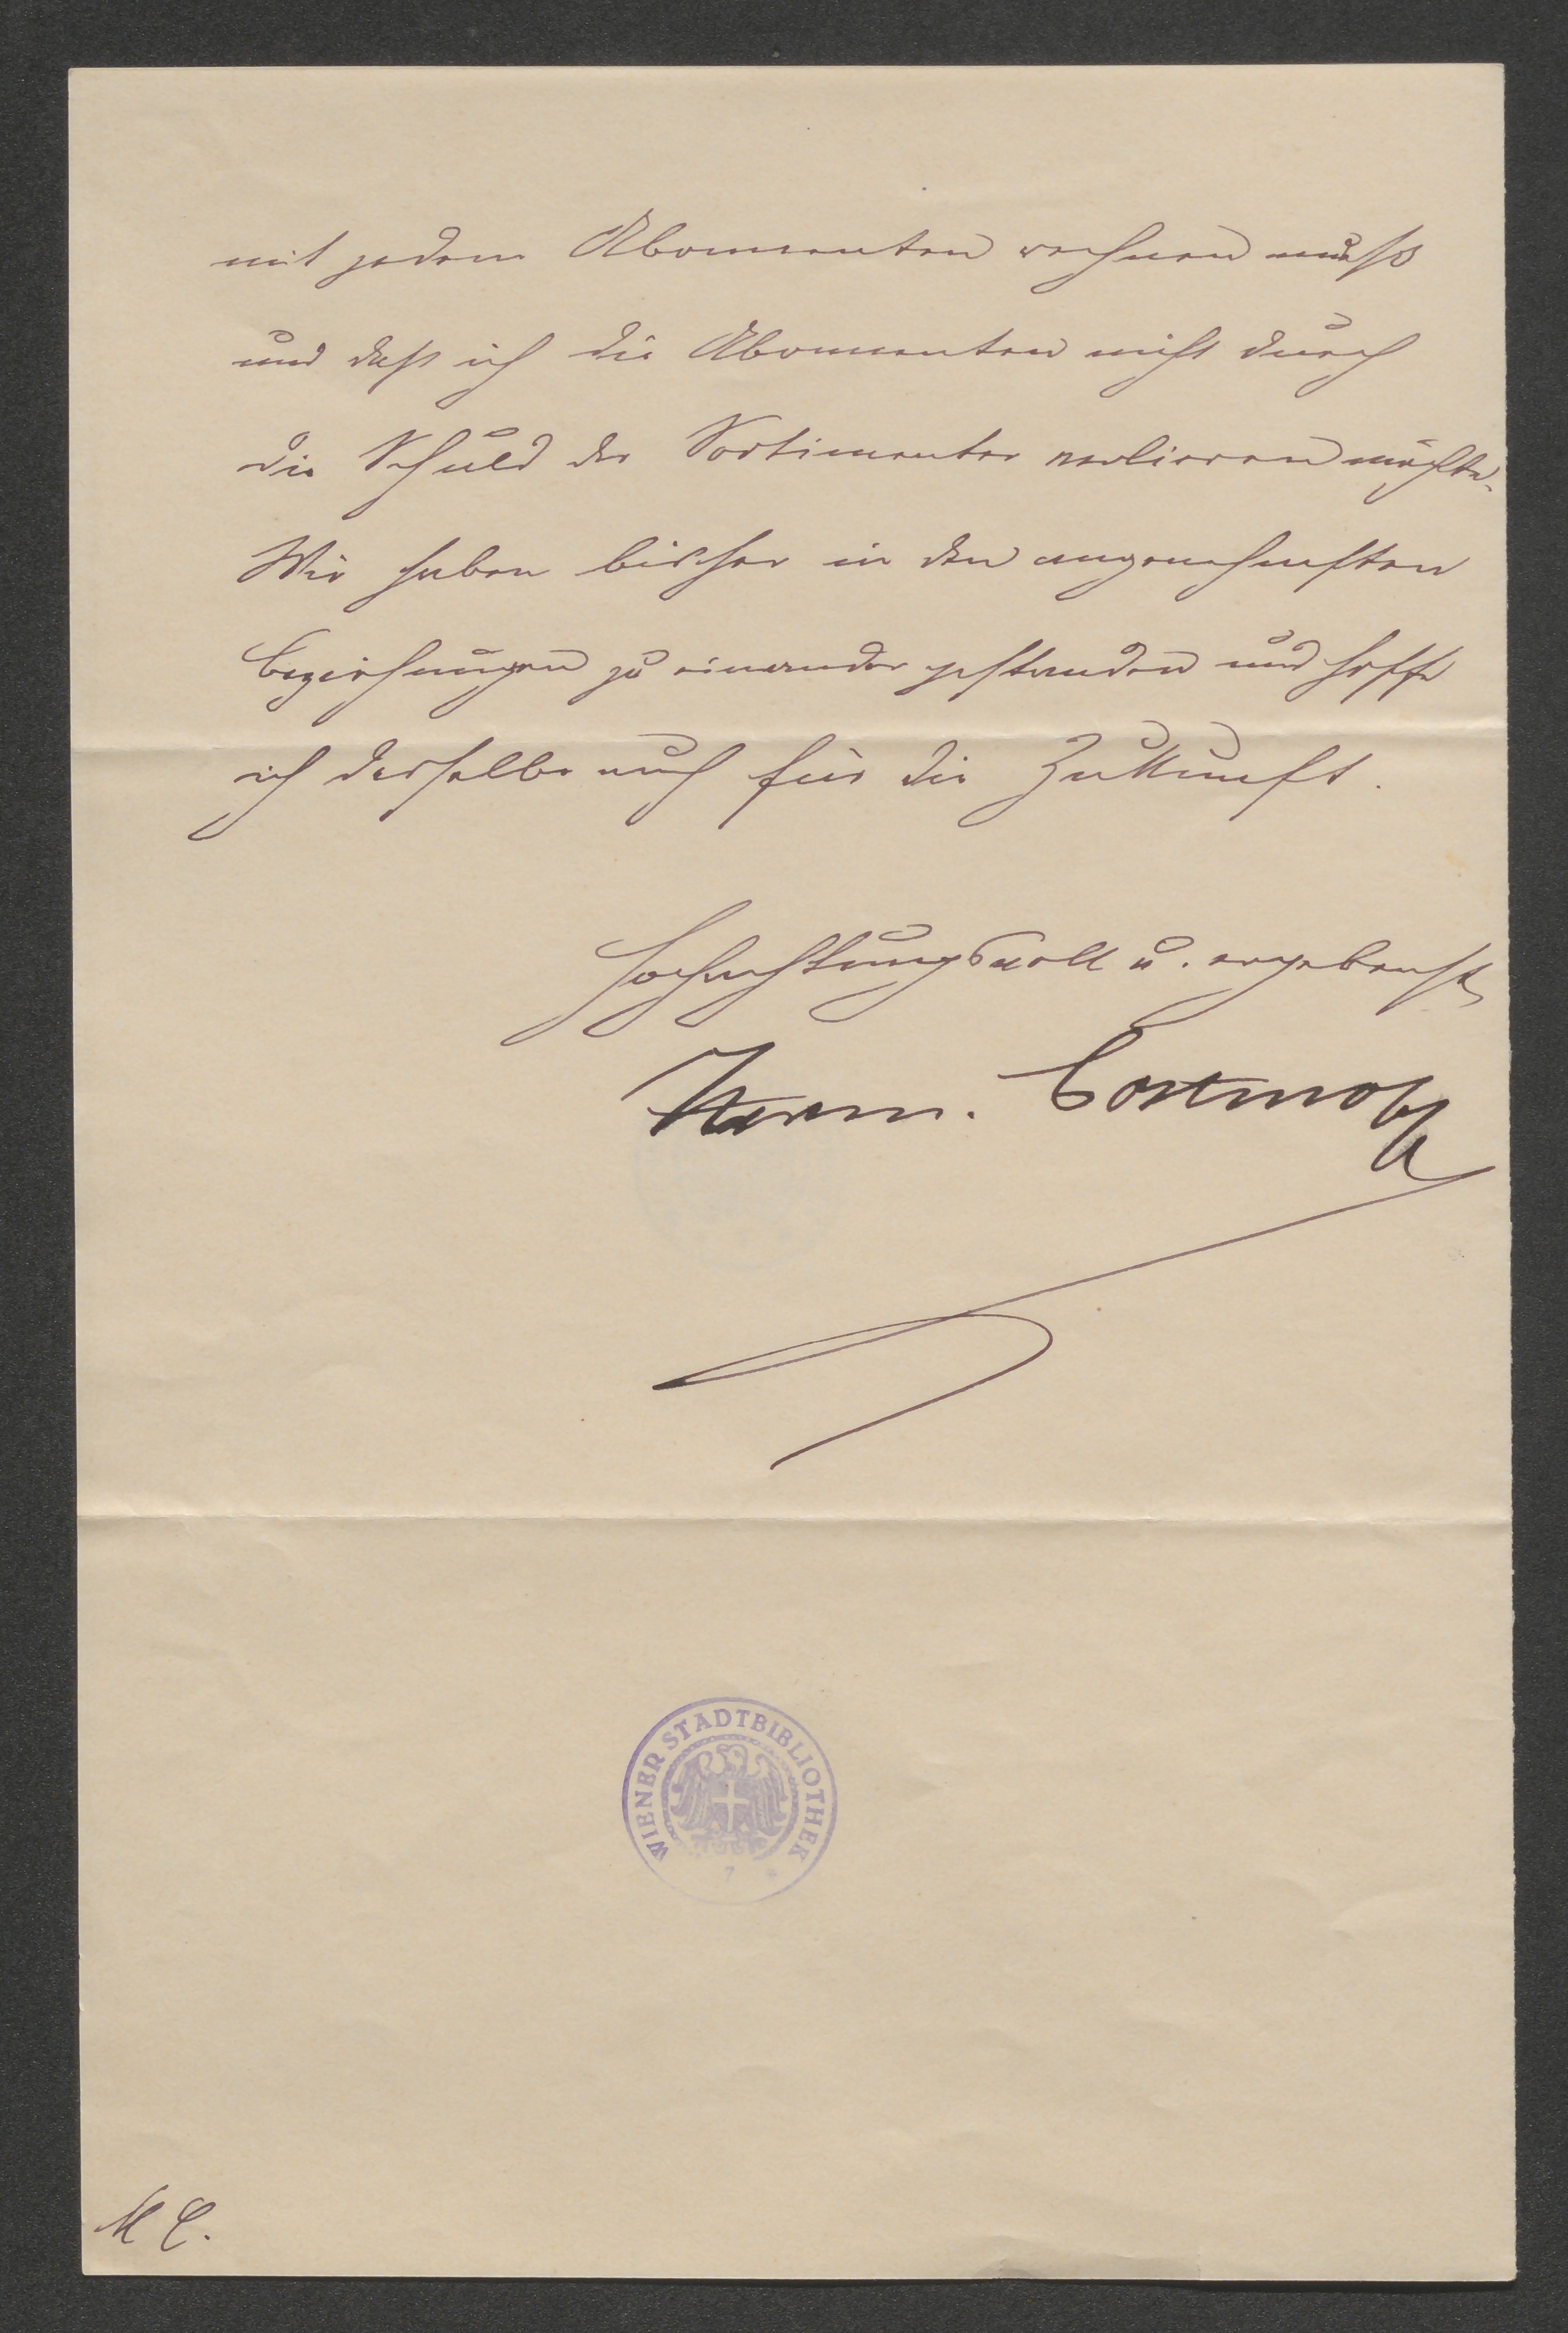 mit jedem Abonnenten rechnen muß
und daß ich die Abonnenten nicht durch
die Schuld der Sortimenter verlieren möchte.
Wir haben bisher in den angenehmsten
Beziehungen zu einander gestanden und hoffe
ich dasselbe auch für die Zukunft.
Hochachtungsvoll u. ergebenst
Herm. Costenoble
WIENER STADTBIBLIOTHEK
M C.